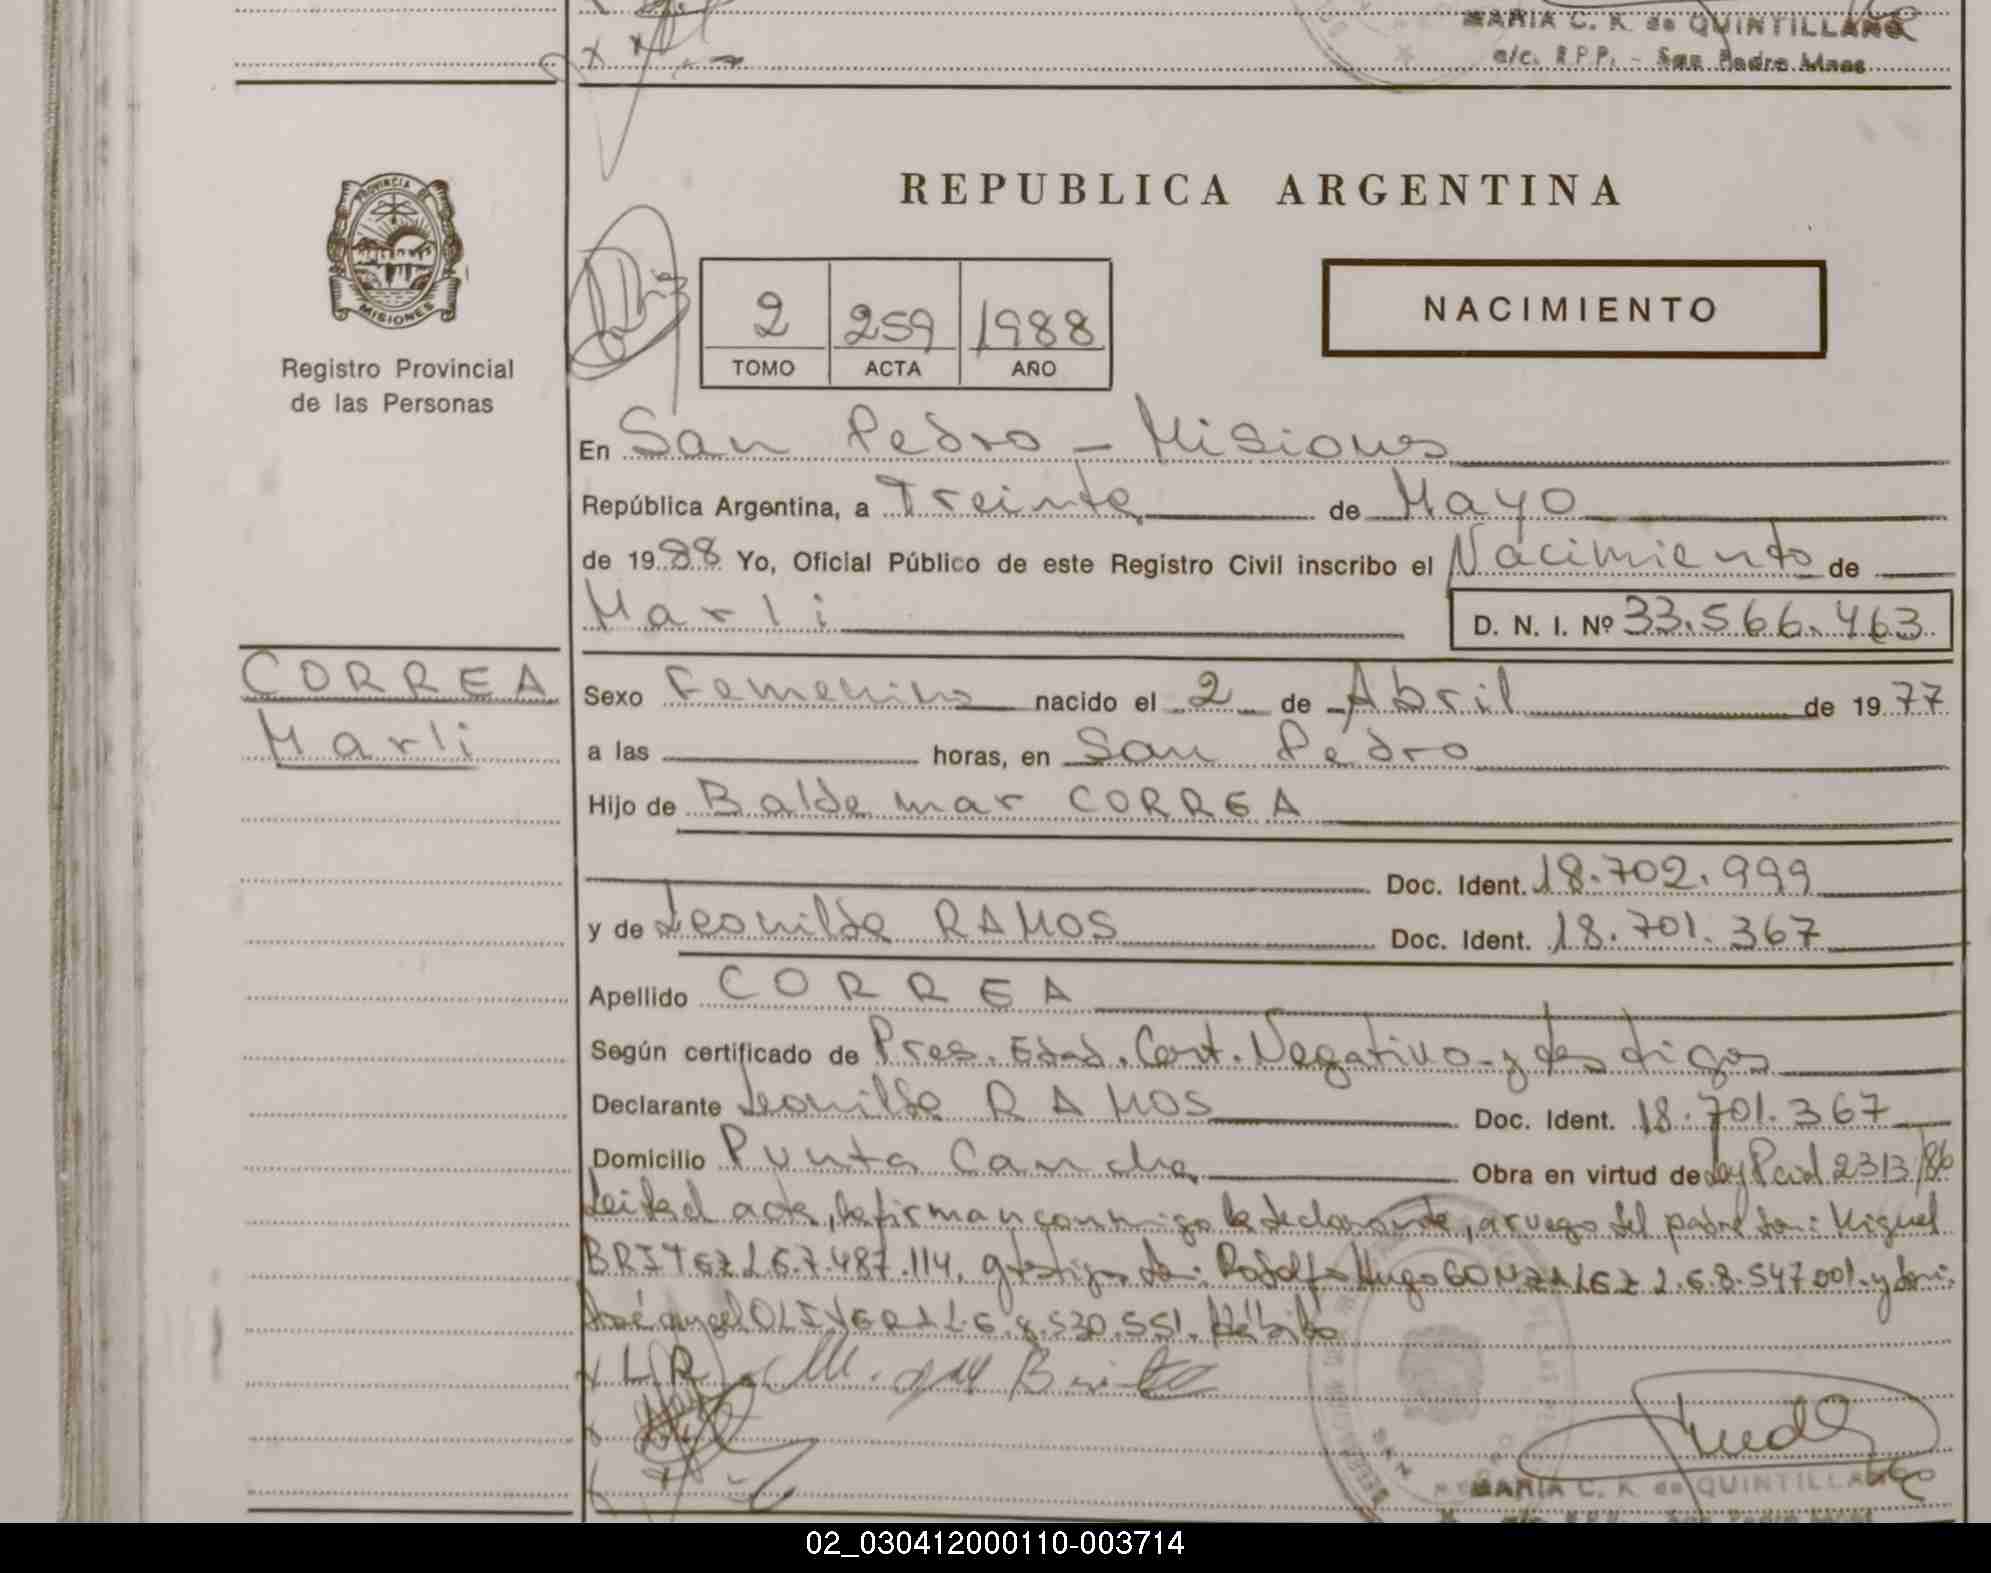 MARIA C. K. de QUINTILLANO
e/c. R.P.P. - San Pedro Mnes
PROVINCIA DE
MISIONES
Registro Provincial
de las Personas
REPUBLICA ARGENTINA
NACIMIENTO
2 259 1988
TOMO ACTA AÑO
En San Pedro - Misiones
República Argentina, a Treinta de Mayo
de 1988 Yo, Oficial Público de este Registro Civil inscribo el Nacimiento de
Marli D. N. I. Nº 33.566.463
CORREA
Marli
Sexo Femenino nacido el 2 de Abril de 1977
a las horas, en San Pedro
Hijo de Baldemar CORREA
Doc. Ident. 18.702.999
y de Leonilda RAMOS Doc. Ident. 18.701.367
Apellido CORREA
Según certificado de Pres. Edad. Cert. Negativo y testigos
Declarante Leonilda RAMOS Doc. Ident. 18.701.367
Domicilio Punta Cancha Obra en virtud de Ley Pcial 2313/86
Leida el acta, la firman conmigo la declarante, a ruego del padre don: Miguel
BRITEZ L.E.7.487.114. y testigos don: Rodolfo Hugo GONZALEZ L.E.8.547.001. y don:
José Angel OLIVERA L.E.8.530.551.
x L R Britez
MARIA C. K. de QUINTILLANO
02_030412000110-003714